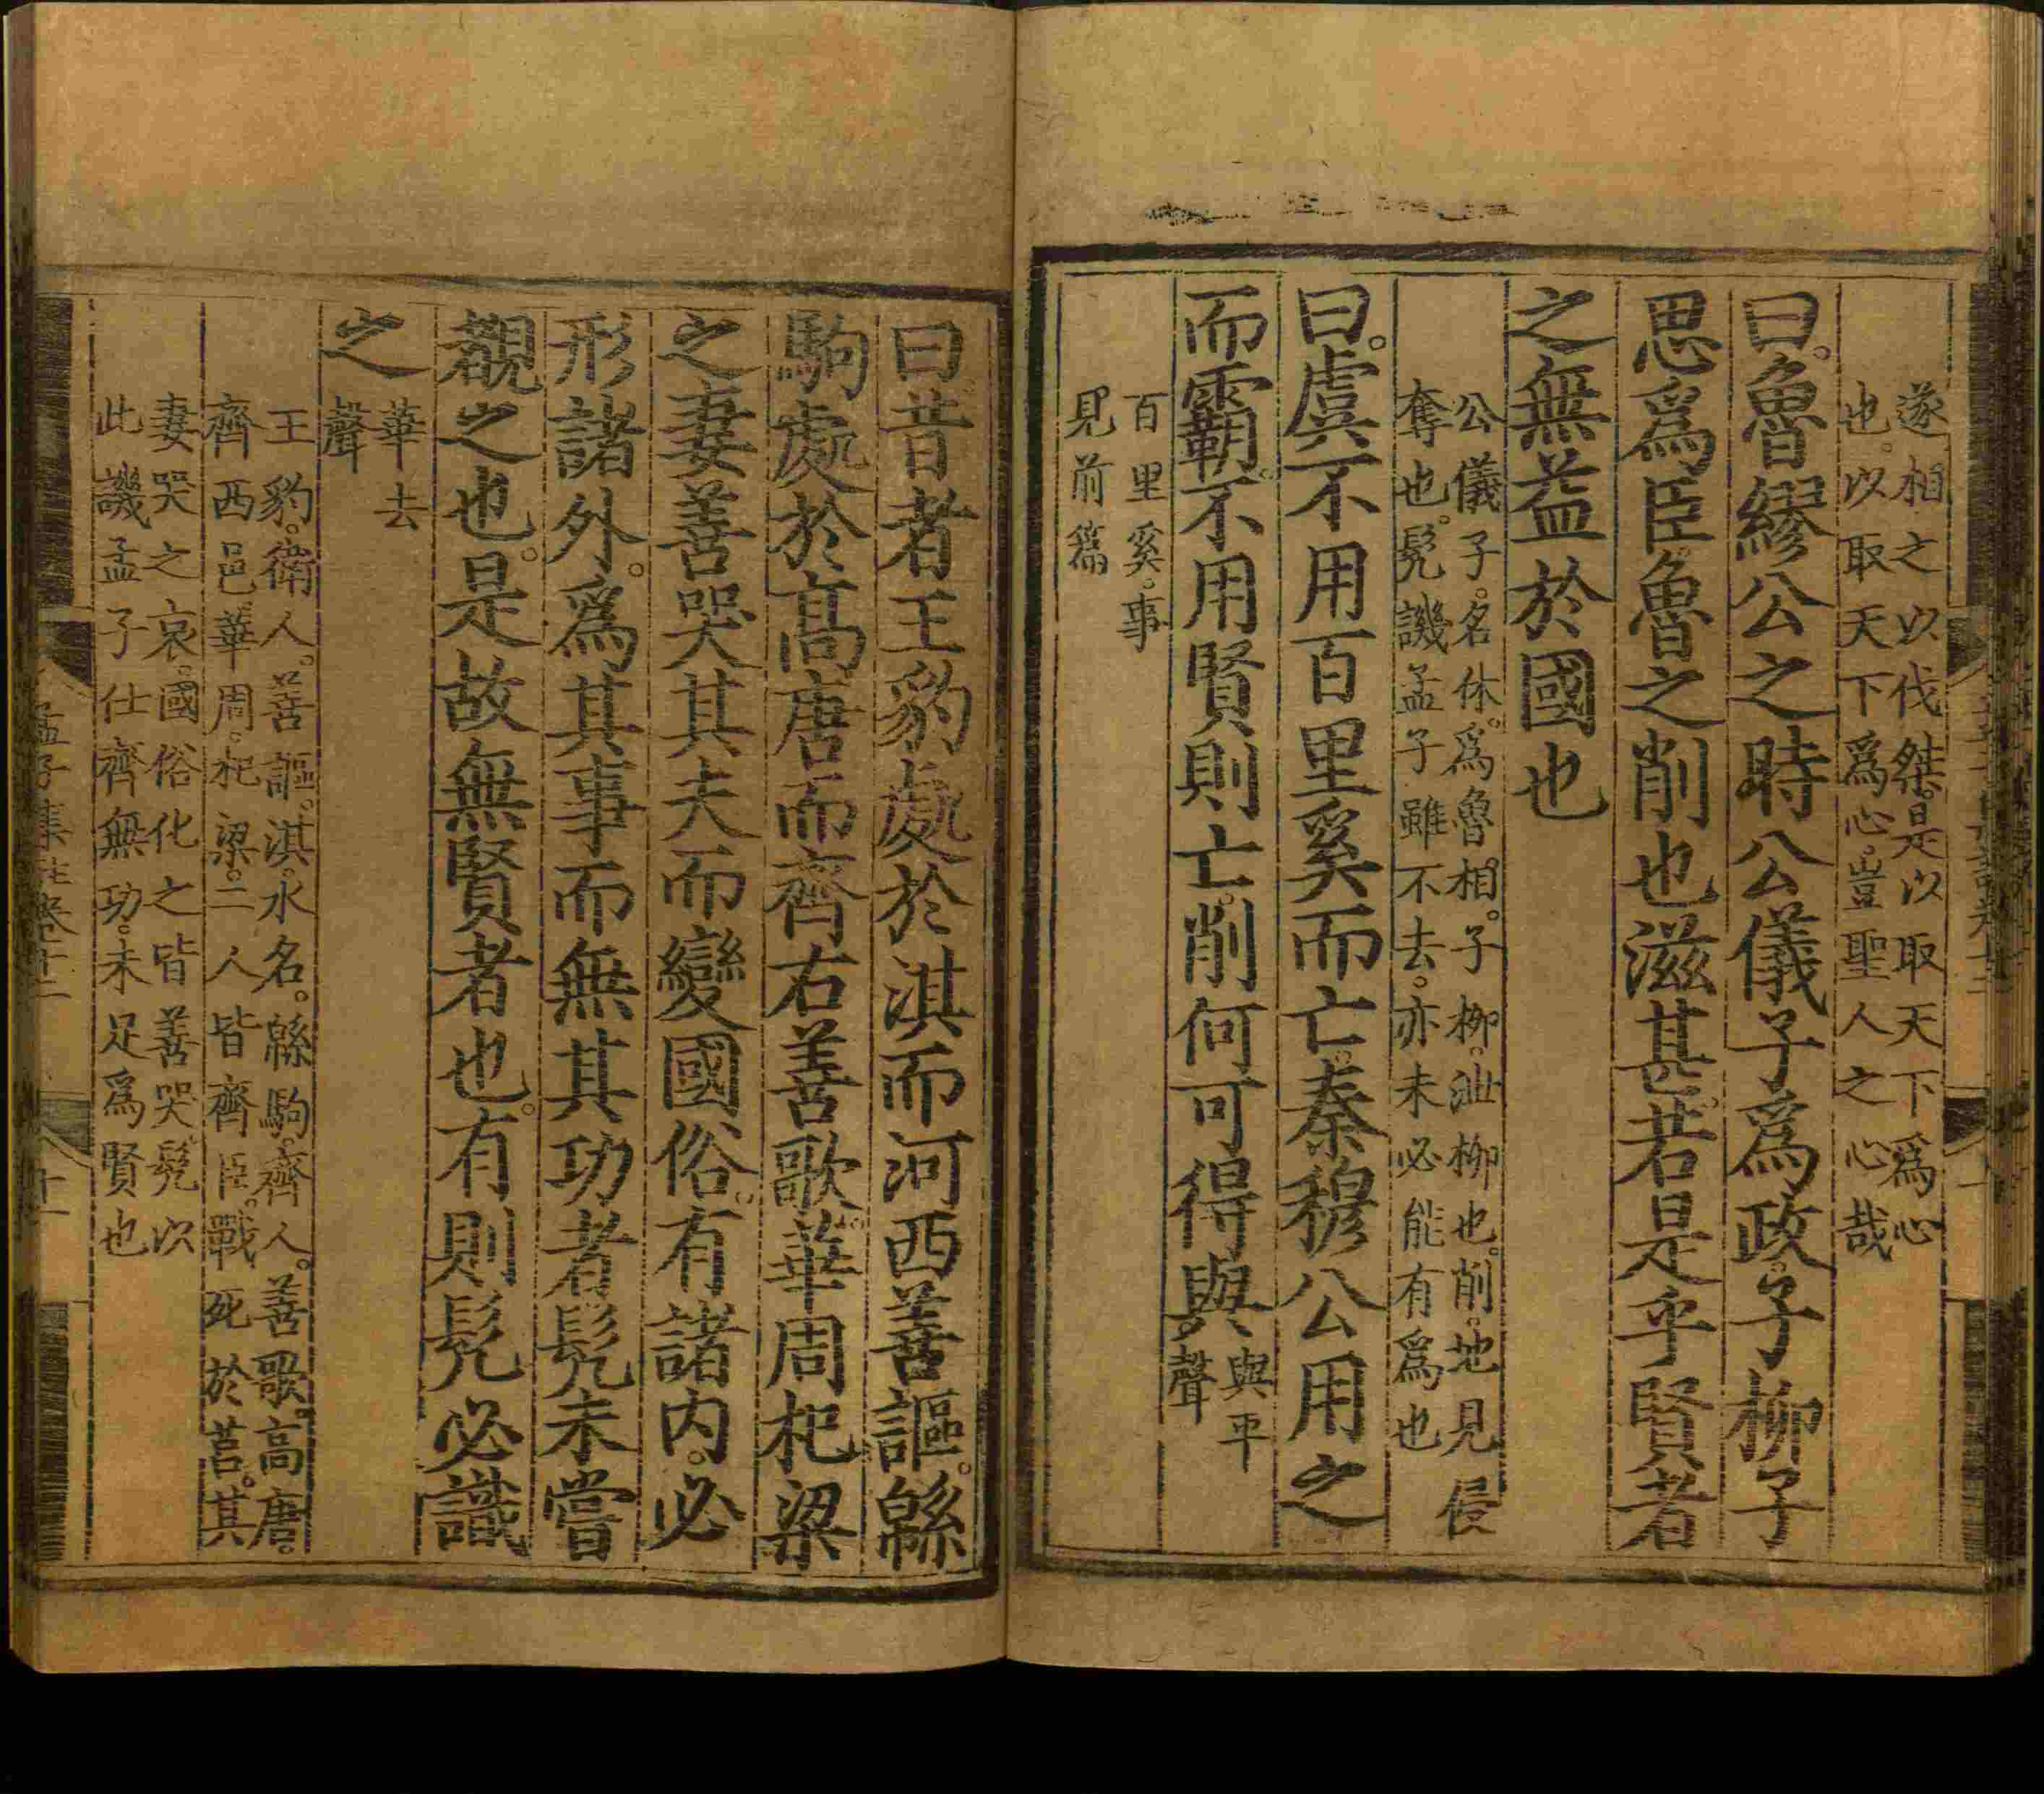 遂相之以伐桀。是以取天下爲心
也。以取天下爲心。豈聖人之心哉
曰。魯繆公之時公儀子爲政。子柳子
思爲臣。魯之削也滋甚。若是乎賢者
之無益於國也
公儀子。名休。爲魯相。子柳。泄柳也。削。地見侵
奪也。髡譏孟子雖不去。亦未必能有爲也
曰。虞不用百里奚而亡。秦穆公用之
而霸。不用賢則亡。削何可得與
與平
聲
百里奚。事
見前篇
曰。昔者王豹處於淇而河西善謳。緜
駒處於高唐而齊右善歌。華周杞梁
之妻善哭其夫而變國俗。有諸內。必
形諸外。爲其事而無其功者髡未嘗
覩之也。是故無賢者也。有則髡必識
之
華去
聲
王豹。衛人。善謳。淇。水名。緜駒。齊人。善歌。高唐。
齊西邑。華周。杞梁。二人皆齊臣。戰死於莒。其
妻哭之哀。國俗化之皆善哭。髡以
此譏孟子仕齊無功。未足爲賢也
孟子集註卷十二
十一